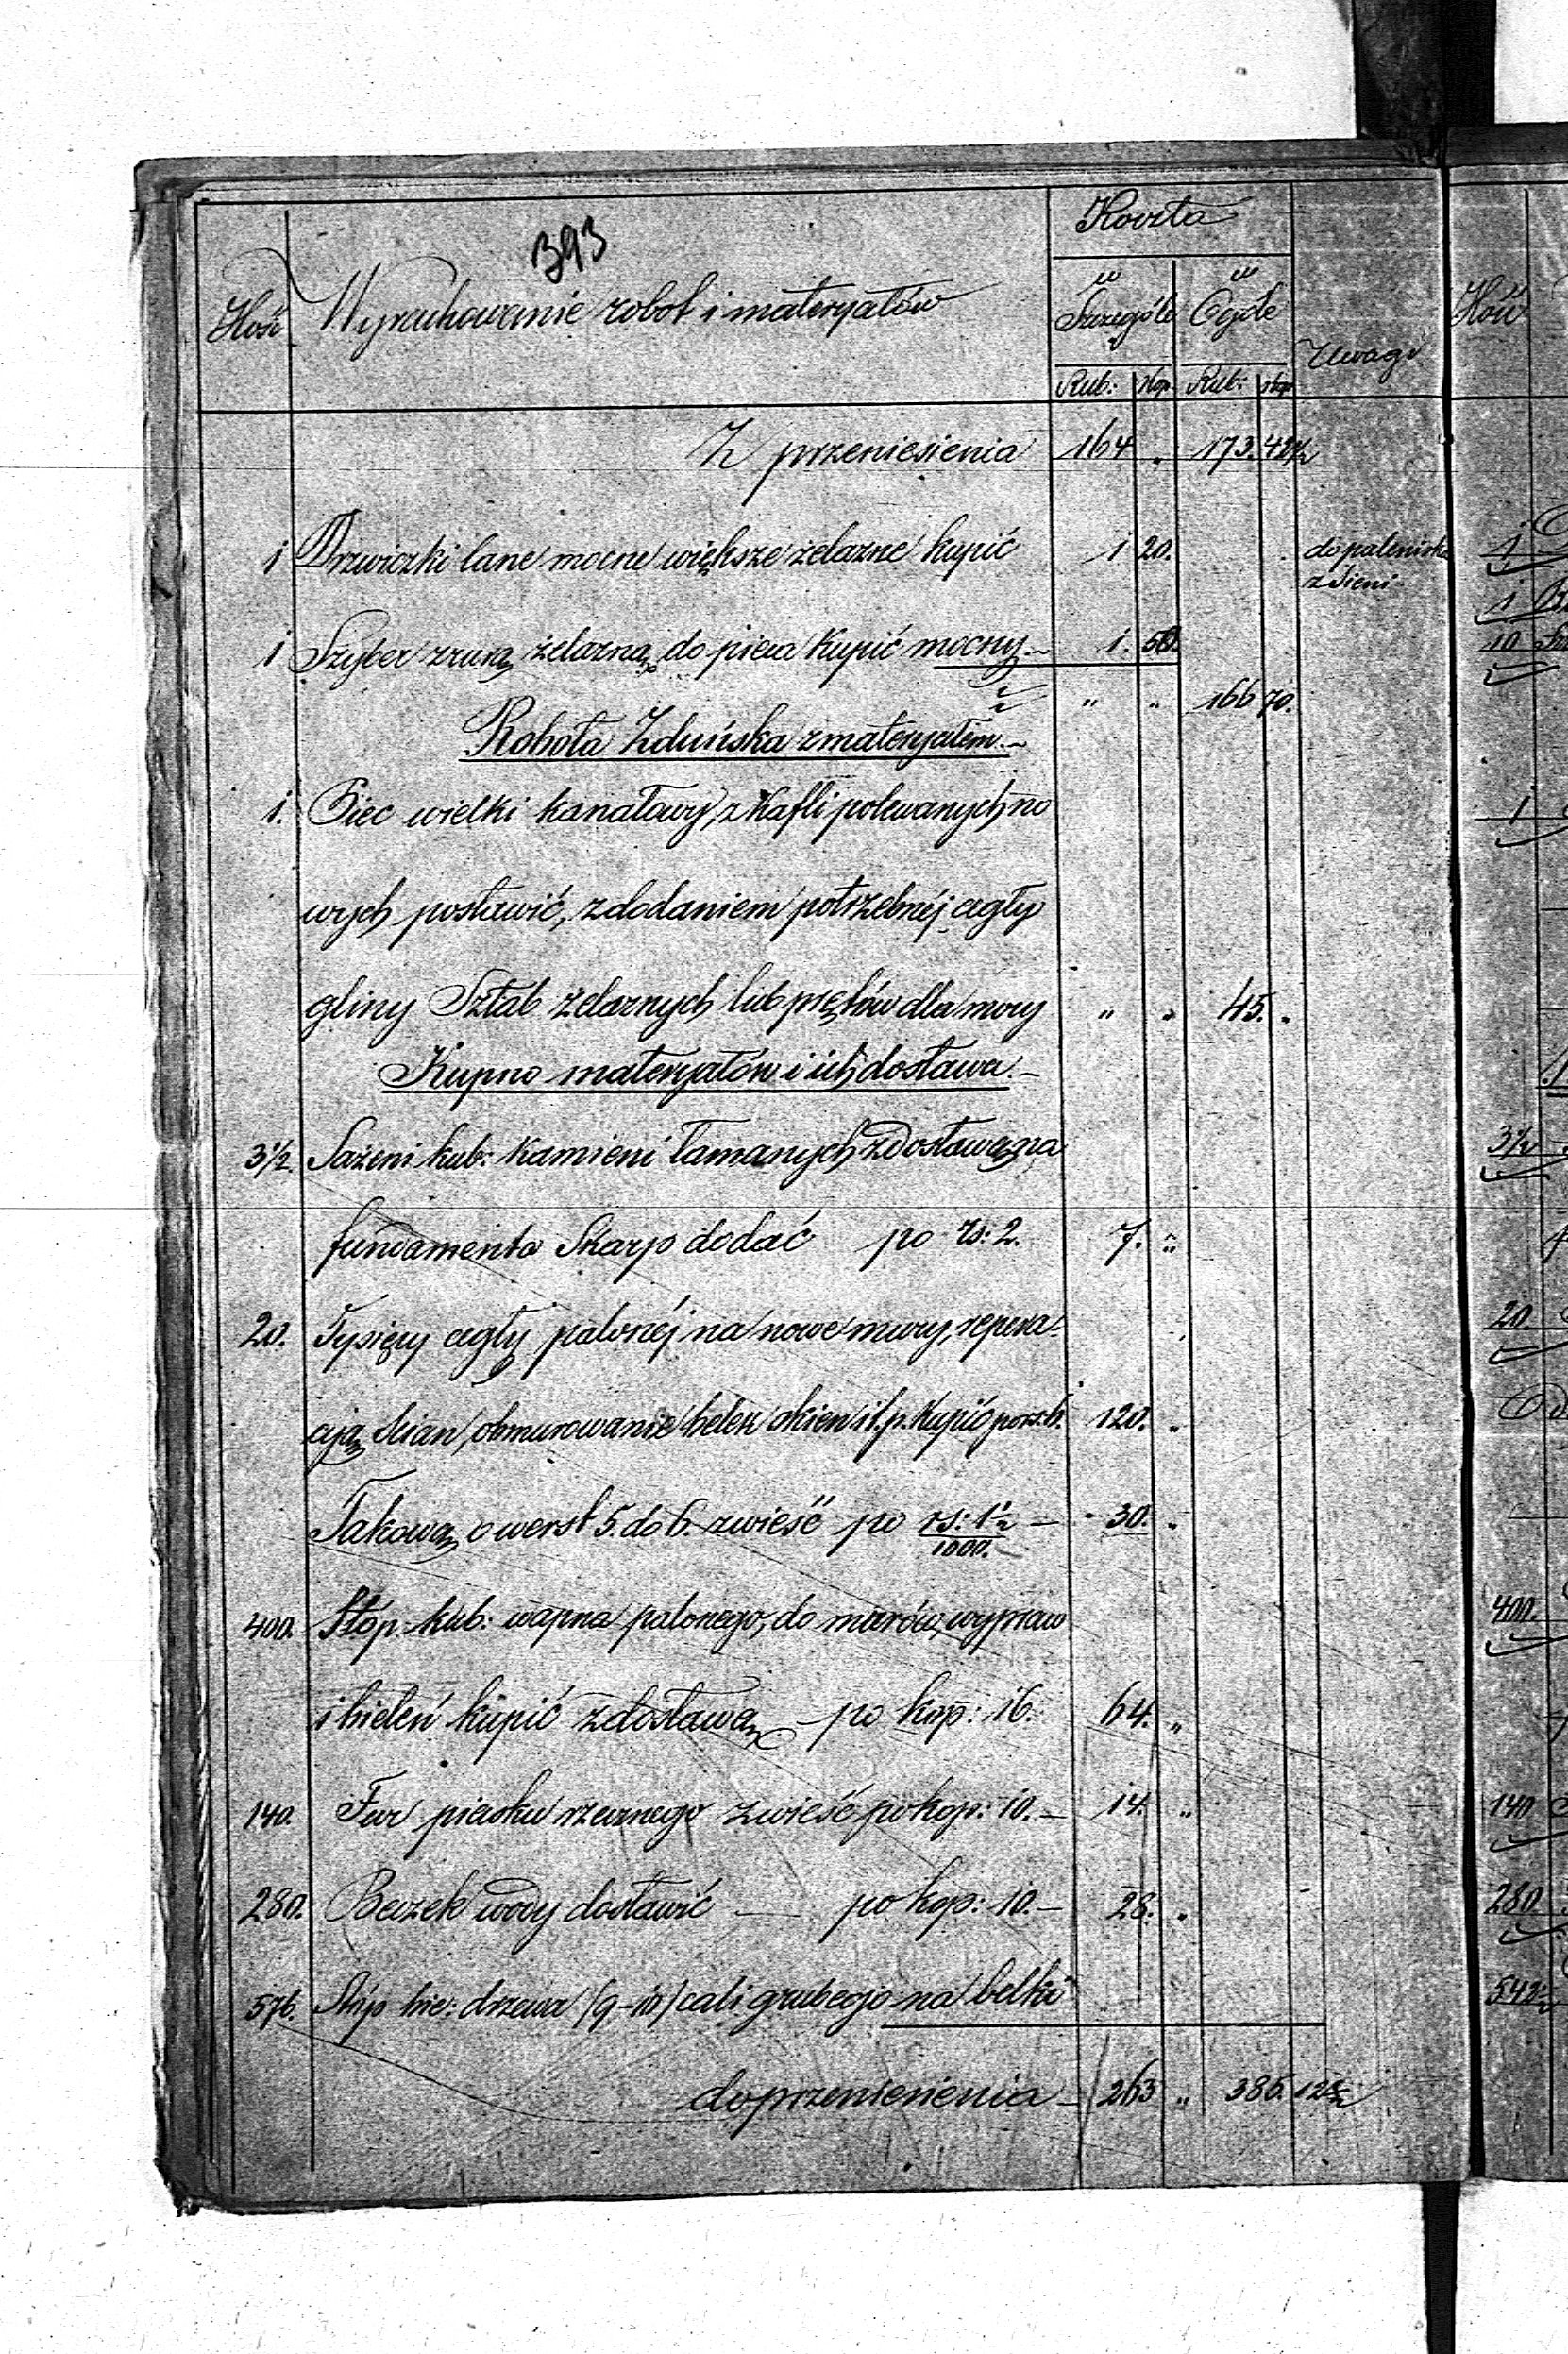 393
Koszta
Ilość Wyrachowanie robot i materyałów
w Szczególe w Ogóle Uwagi
Rub: kop. Rub: kop.
Z przeniesienia 164 „ 173. 42½
1 Drzwiczki lane mocne większe żelazne kupić 1 20. do paleniska
z Sieni
1 Szyber z rurą żelazną do pieca kupić mocny.— 1. 50.
„ „ 166 70.
Robota Zduńska z materyałem.—
1. Piec wielki kanałowy, z kafli polewanych no
wych postawić, z dodaniem potrzebnéj cegły
gliny Sztab żelaznych lub prętów dla mocy „ „ 45. „
Kupno materyałów i ich dostawa.—
3½ Sażeni kub: kamieni łamanych z dostawą na
fundamenta Skarp dodać po rs: 2. 7. „
20. Tysięcy cegły palonéj na nowe mury, repera-
cją ścian, obmurowanie belek okien i t.p. kupić po rs: 6. 120. „
Takową o werst 5. do 6. zwieść po rs: 1½ / 1000. — 30. „
400. Stóp. kub: wapna palonego, do murów, wypraw
i bieleń kupić z dostawą — po kop: 16. 64. „
140. Fur piasku rzecznego zwieść po kop: 10.— 14. „
280. Beczek wody dostawić — po kop: 10.— 28. „
576. Stóp bie: drzewa (9-10) cali grubego na belki
do przeniesienia — 263 „ 385. 12½
Ilość
1
1
10
1
3½
20
400.
140
280
542½